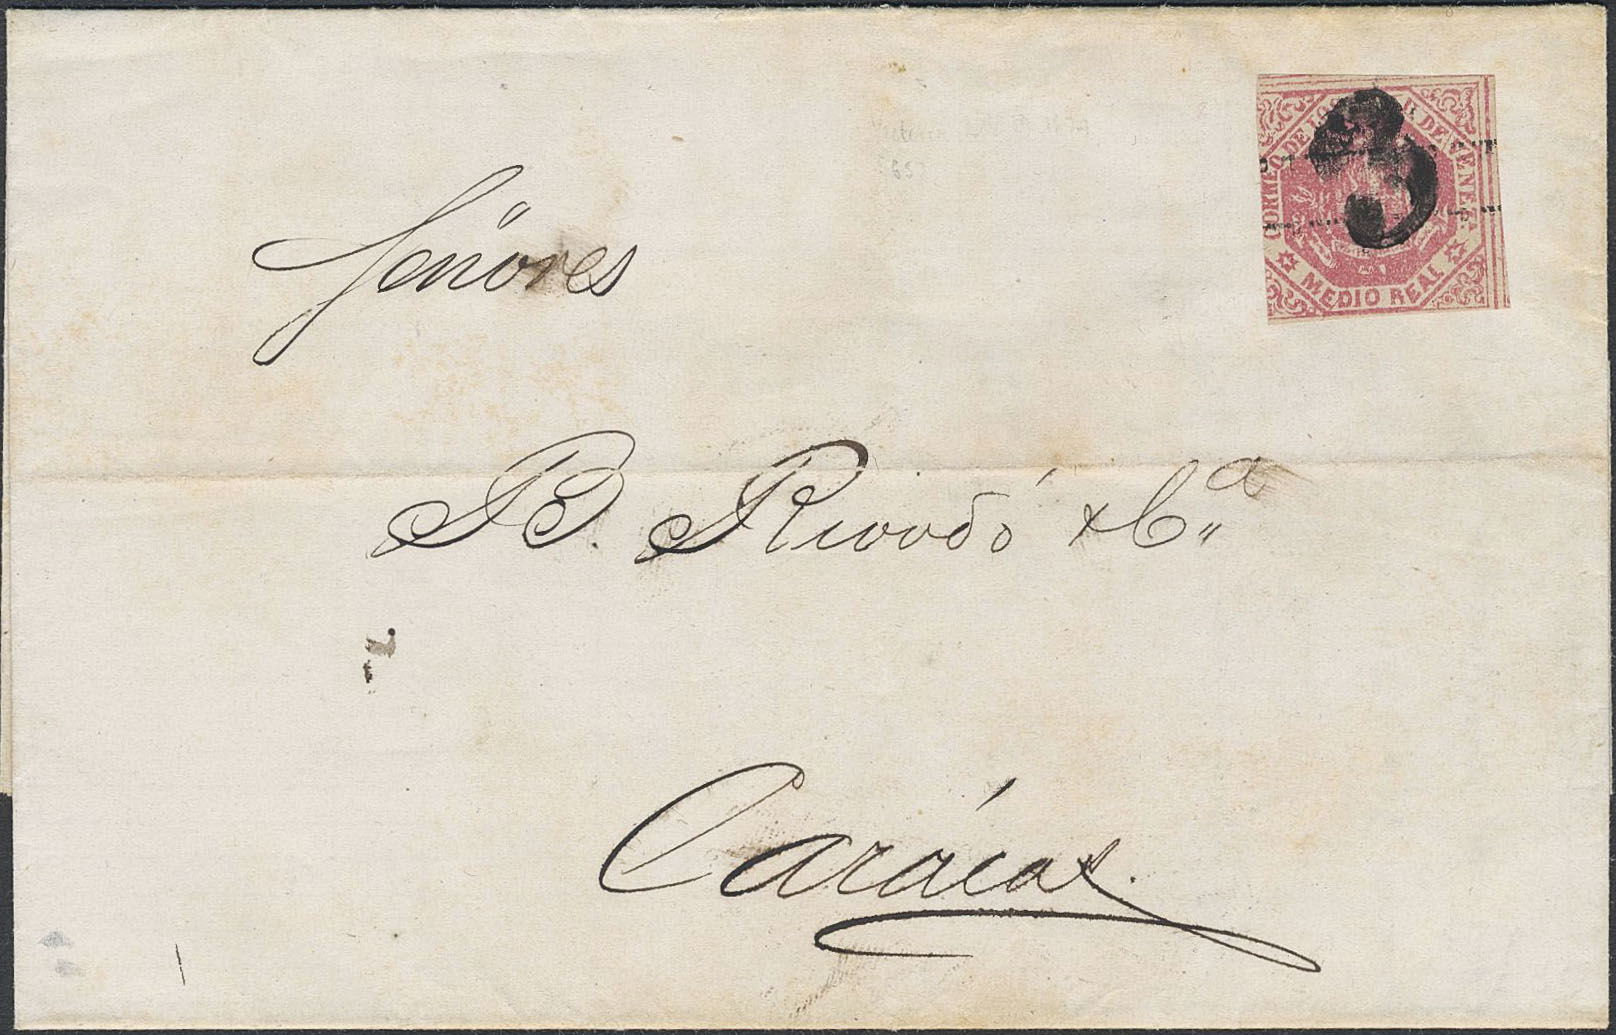 CORREO DE LOS EE. UU. DE VENEZA.
MEDIO REAL
3
Señores
B. Rivodó & Ca.
Carácas.